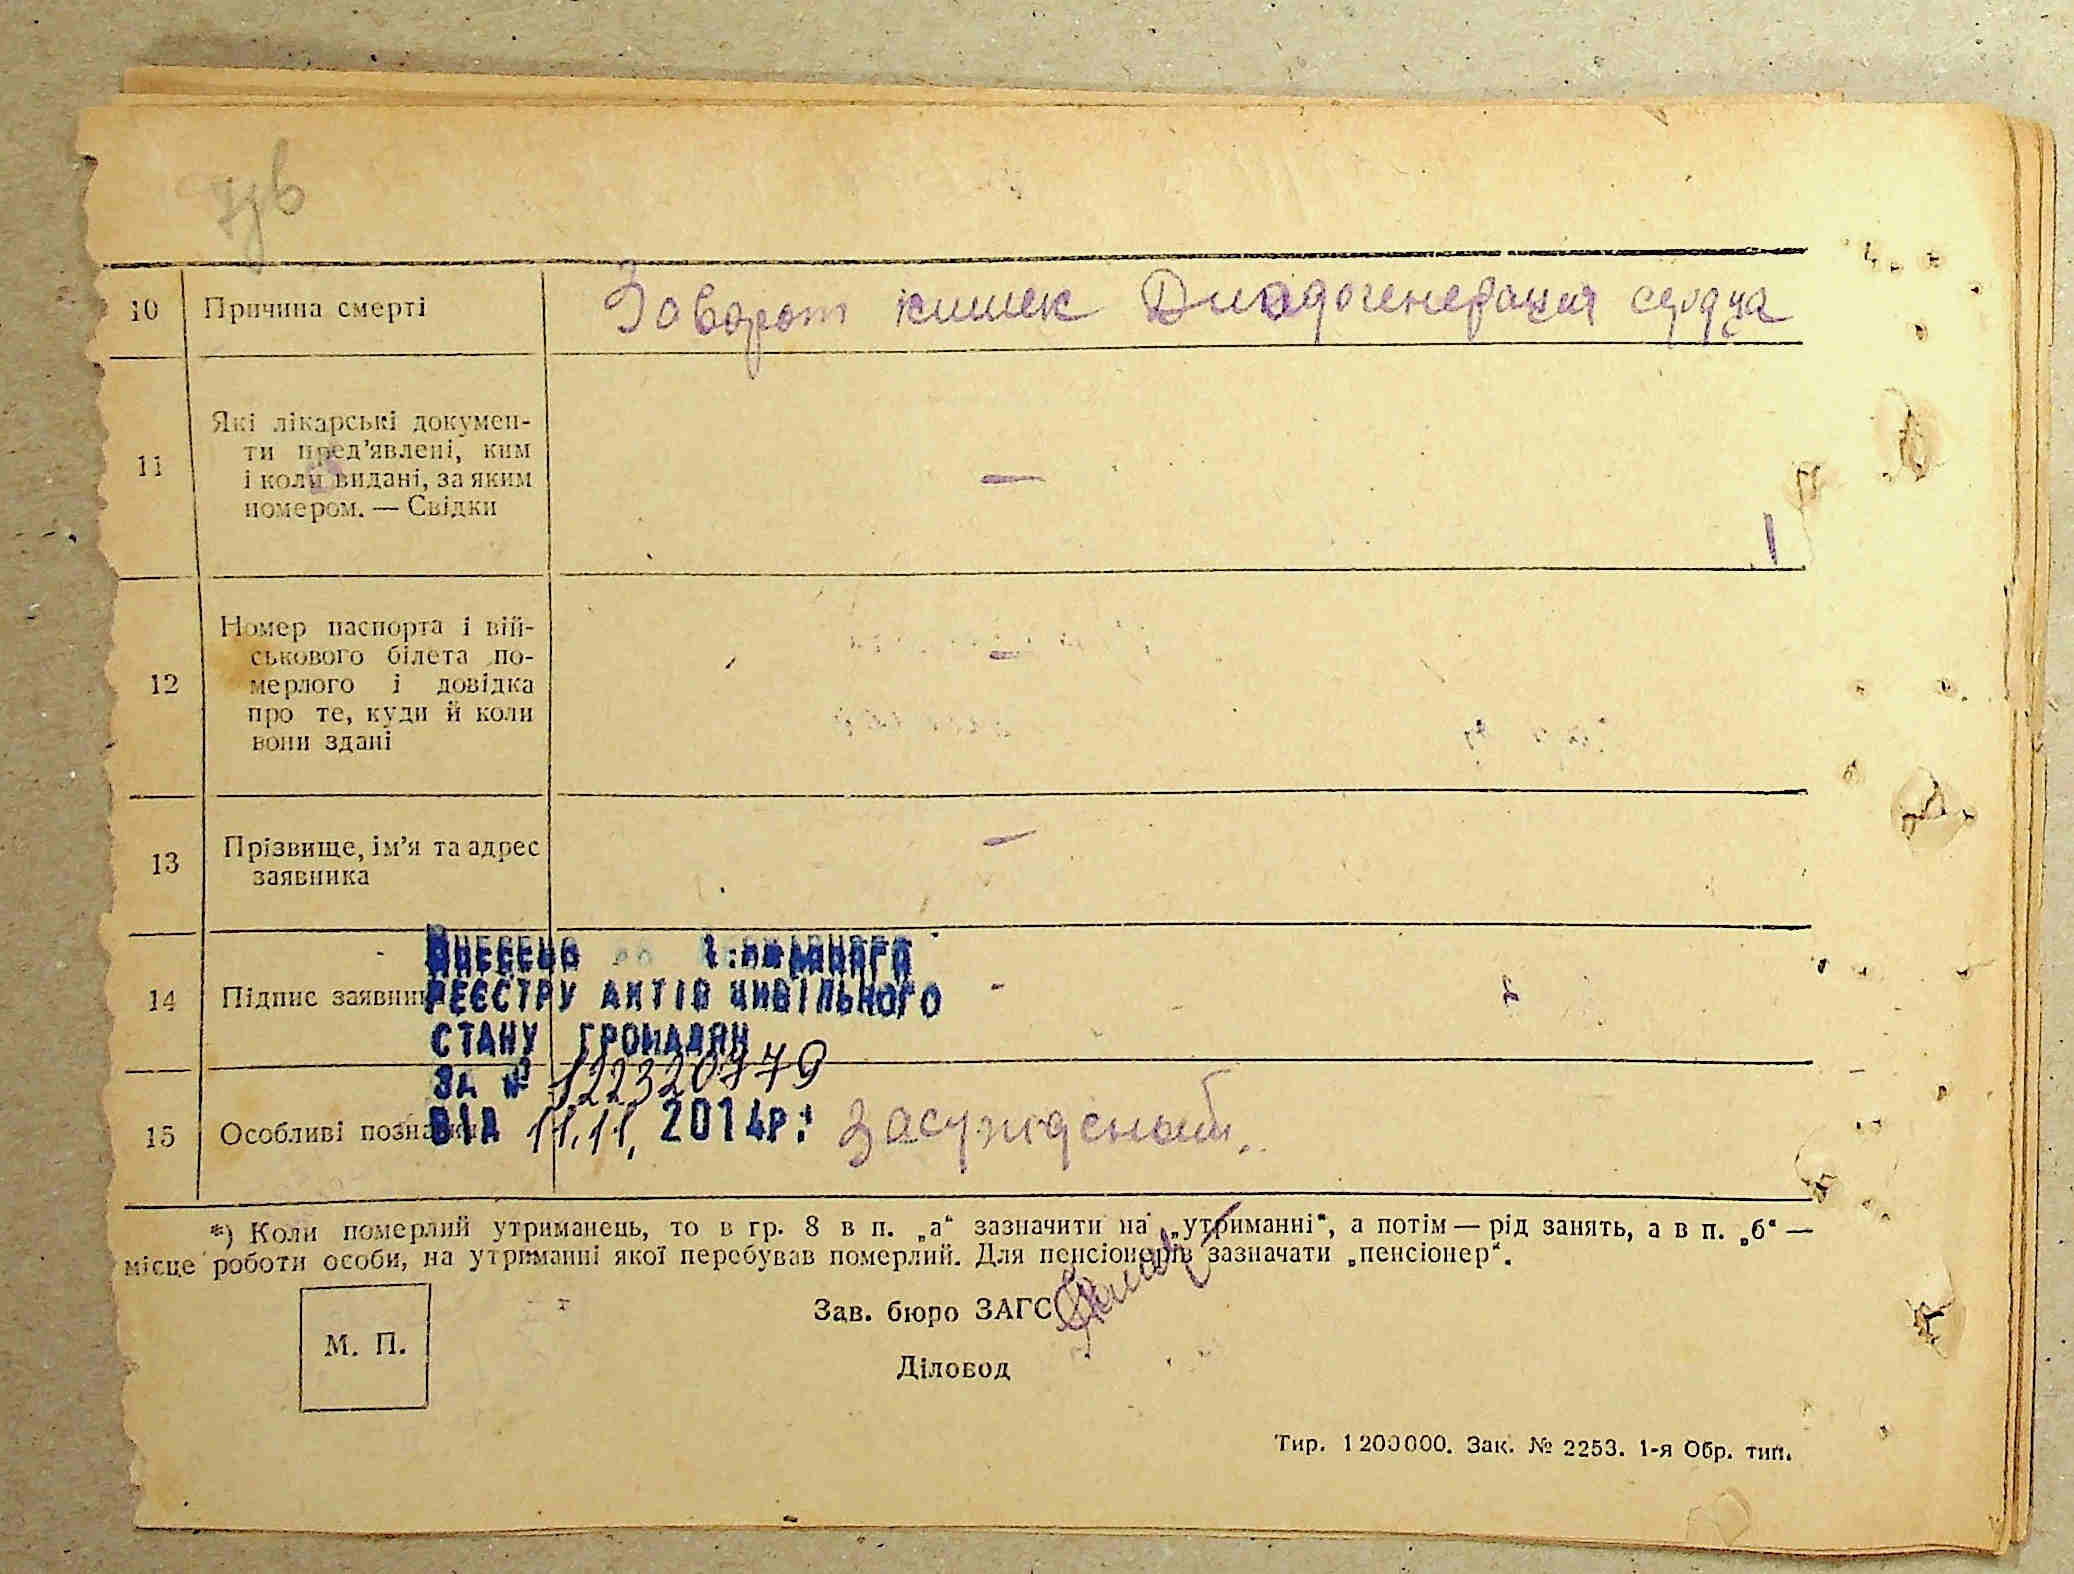 10 Причина смерті Заворот кишек Диодогенерация сердца
11 Які лікарські докумен-
ти пред’явлені, ким
і коли видані, за яким
номером. — Свідки —
12 Номер паспорта і вій-
ськового білета по-
мерлого і довідка
про те, куди й коли
вони здані —
13 Прізвище, ім’я та адрес
заявника —
ВНЕСЕНО ДО Державного
14 Підпис заявника РЕЄСТРУ АКТІВ ЦИВІЛЬНОГО -
СТАНУ ГРОМАДЯН
ЗА № 122320779
15 Особливі познач ВІД 11.11. 2014р. Засужденный.
*) Коли померлий утриманець, то в гр. 8 в п. „а“ зазначити на „утриманні“, а потім — рід занять, а в п. „б“ —
місце роботи особи, на утриманні якої перебував померлий. Для пенсіонерів зазначати „пенсіонер“.
Зав. бюро ЗАГС
М. П.
Діловод
Тир. 1200000. Зак. № 2253. 1-я Обр. тип.